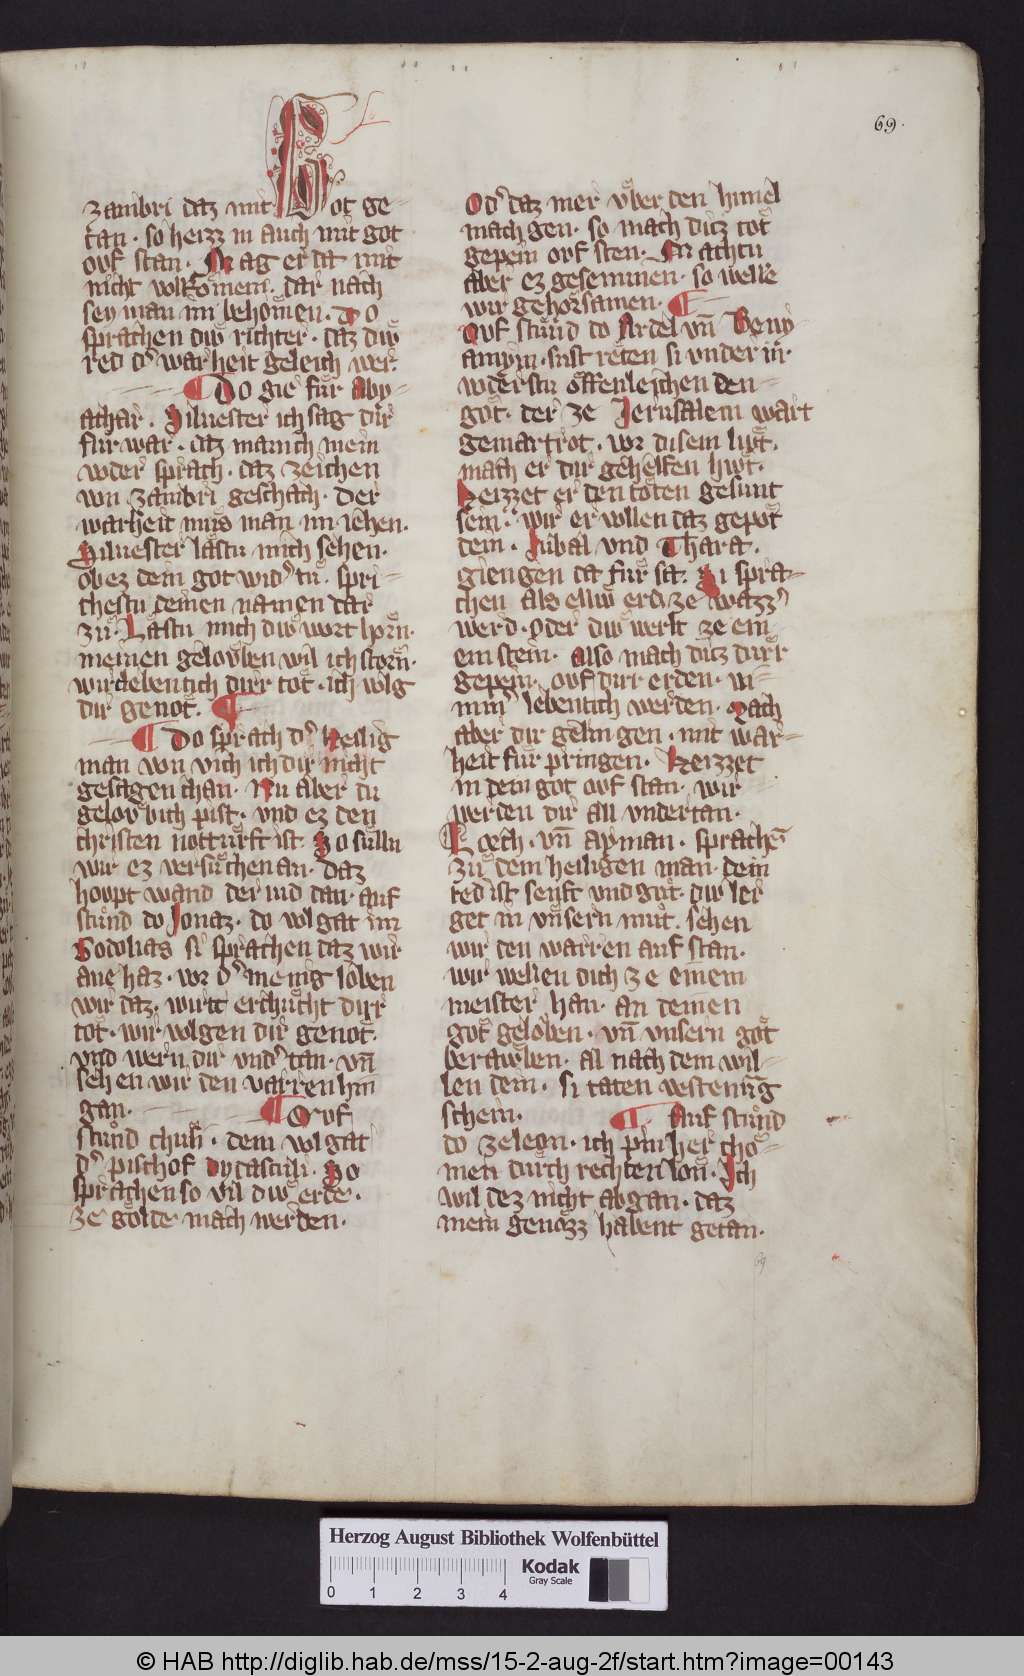 69.
zambri daz mit Got ge-
tan. so heizz in auch mit got
ovf stan. Mag er da mit
nicht volkomen. dar nach
sey man im bekomen. Do
sprachen diw richter. daz diw
red der warheit geleich wer.
¶ Do gie fuͤr Aby-
athar. Siluester ich sag dir
fur war. daz manich mein
wider sprach. daz zeichen
von zambri geschach. Der
warheit muͦs man im iehen.
Siluester lastu mich sehen.
ob ez dein got widͤ tuͤ. spri-
chestu deinen namen dar
zuͦ. Lastu mich diw wort hoͤrn.
meinen gelouben wil ich stoͤrn.
wirt lebentich dirr tot. ich volg
dir genot. ¶
¶ Do sprach dͤ heilig
man von uich ich dir nicht
gesagen chan. Nu aber du
gelovbich pist. vnd ez den
christen notturft ist. So sulln
wir ez versuͦchen an. daz
houpt wand der iud dan. auf
stuͦnd do Jonaz. do volgat im
Godolias si sprachen daz wir
ane haz. vor dͤ menig loben
wir daz. wirt erchuͦcht dirr
tot. wir volgen dir genot.
vnd wern dir vndͤtan. vn̄
sehen wir den varren hin
gan. ¶ Ovf
stuͦnd chusi. dem volgat
dͤ pischof dydascali. So
sprachen so vil diw erde.
ze golde mach werden.
Odͤ daz mer vͤber den himel
mach gen. so mach ditz tot
gepein ovf sten. Machtu
aber ez geseminen. so welle
wir gehorsamen. ¶
Ovf stuͦnd do Ardel vn̄ Beniy-
amyin. sust reten si vnder in.
widerstu offenleichen den-
got. der ze Jerusalem wart
gemartrot. vor disem livt.
mach er dir gehelfen hivt.
Heizzet er den toten gesunt
sein. wir ervollen daz gepot
dein. Jubal vnd Thara.
giengen da fuͤr sa. Si spra-
chen als elliw erd ze wazzͤ
werd. oder diw werlt ze ein
ein stein. Also mach ditz durr
gepein. ovf dirr erden. ni-
mmͤ lebentich werden. Mach
aber dir gelingen. mit war-
heit fuͤr pringen. Heizzet
in dein got ovf stan. wir
werden dir all vndertan.
¶ Loech. vn̄ Ayman. sprachē
zuͦ dem heiligen man. dein
red ist senft vnd guͦt. diw ler
get in vnsern muͦt. sehen
wir den varren auf stan.
wir wellen dich ze einem
meister han. an deinen
got geloben. vn̄ vnsern got
berawben. al nach dem wil-
len dein. si taten vestenūg
schein. ¶ Auf stuͦnd
do zeleon. ich pin her cho-
men durch rechten lon. Ich
wil dez nicht abgan. daz
mein genozz habent getan.
69
Herzog August Bibliothek Wolfenbüttel
0 1 2 3 4
Kodak
Gray Scale
© HAB http://diglib.hab.de/mss/15-2-aug-2f/start.htm?image=00143